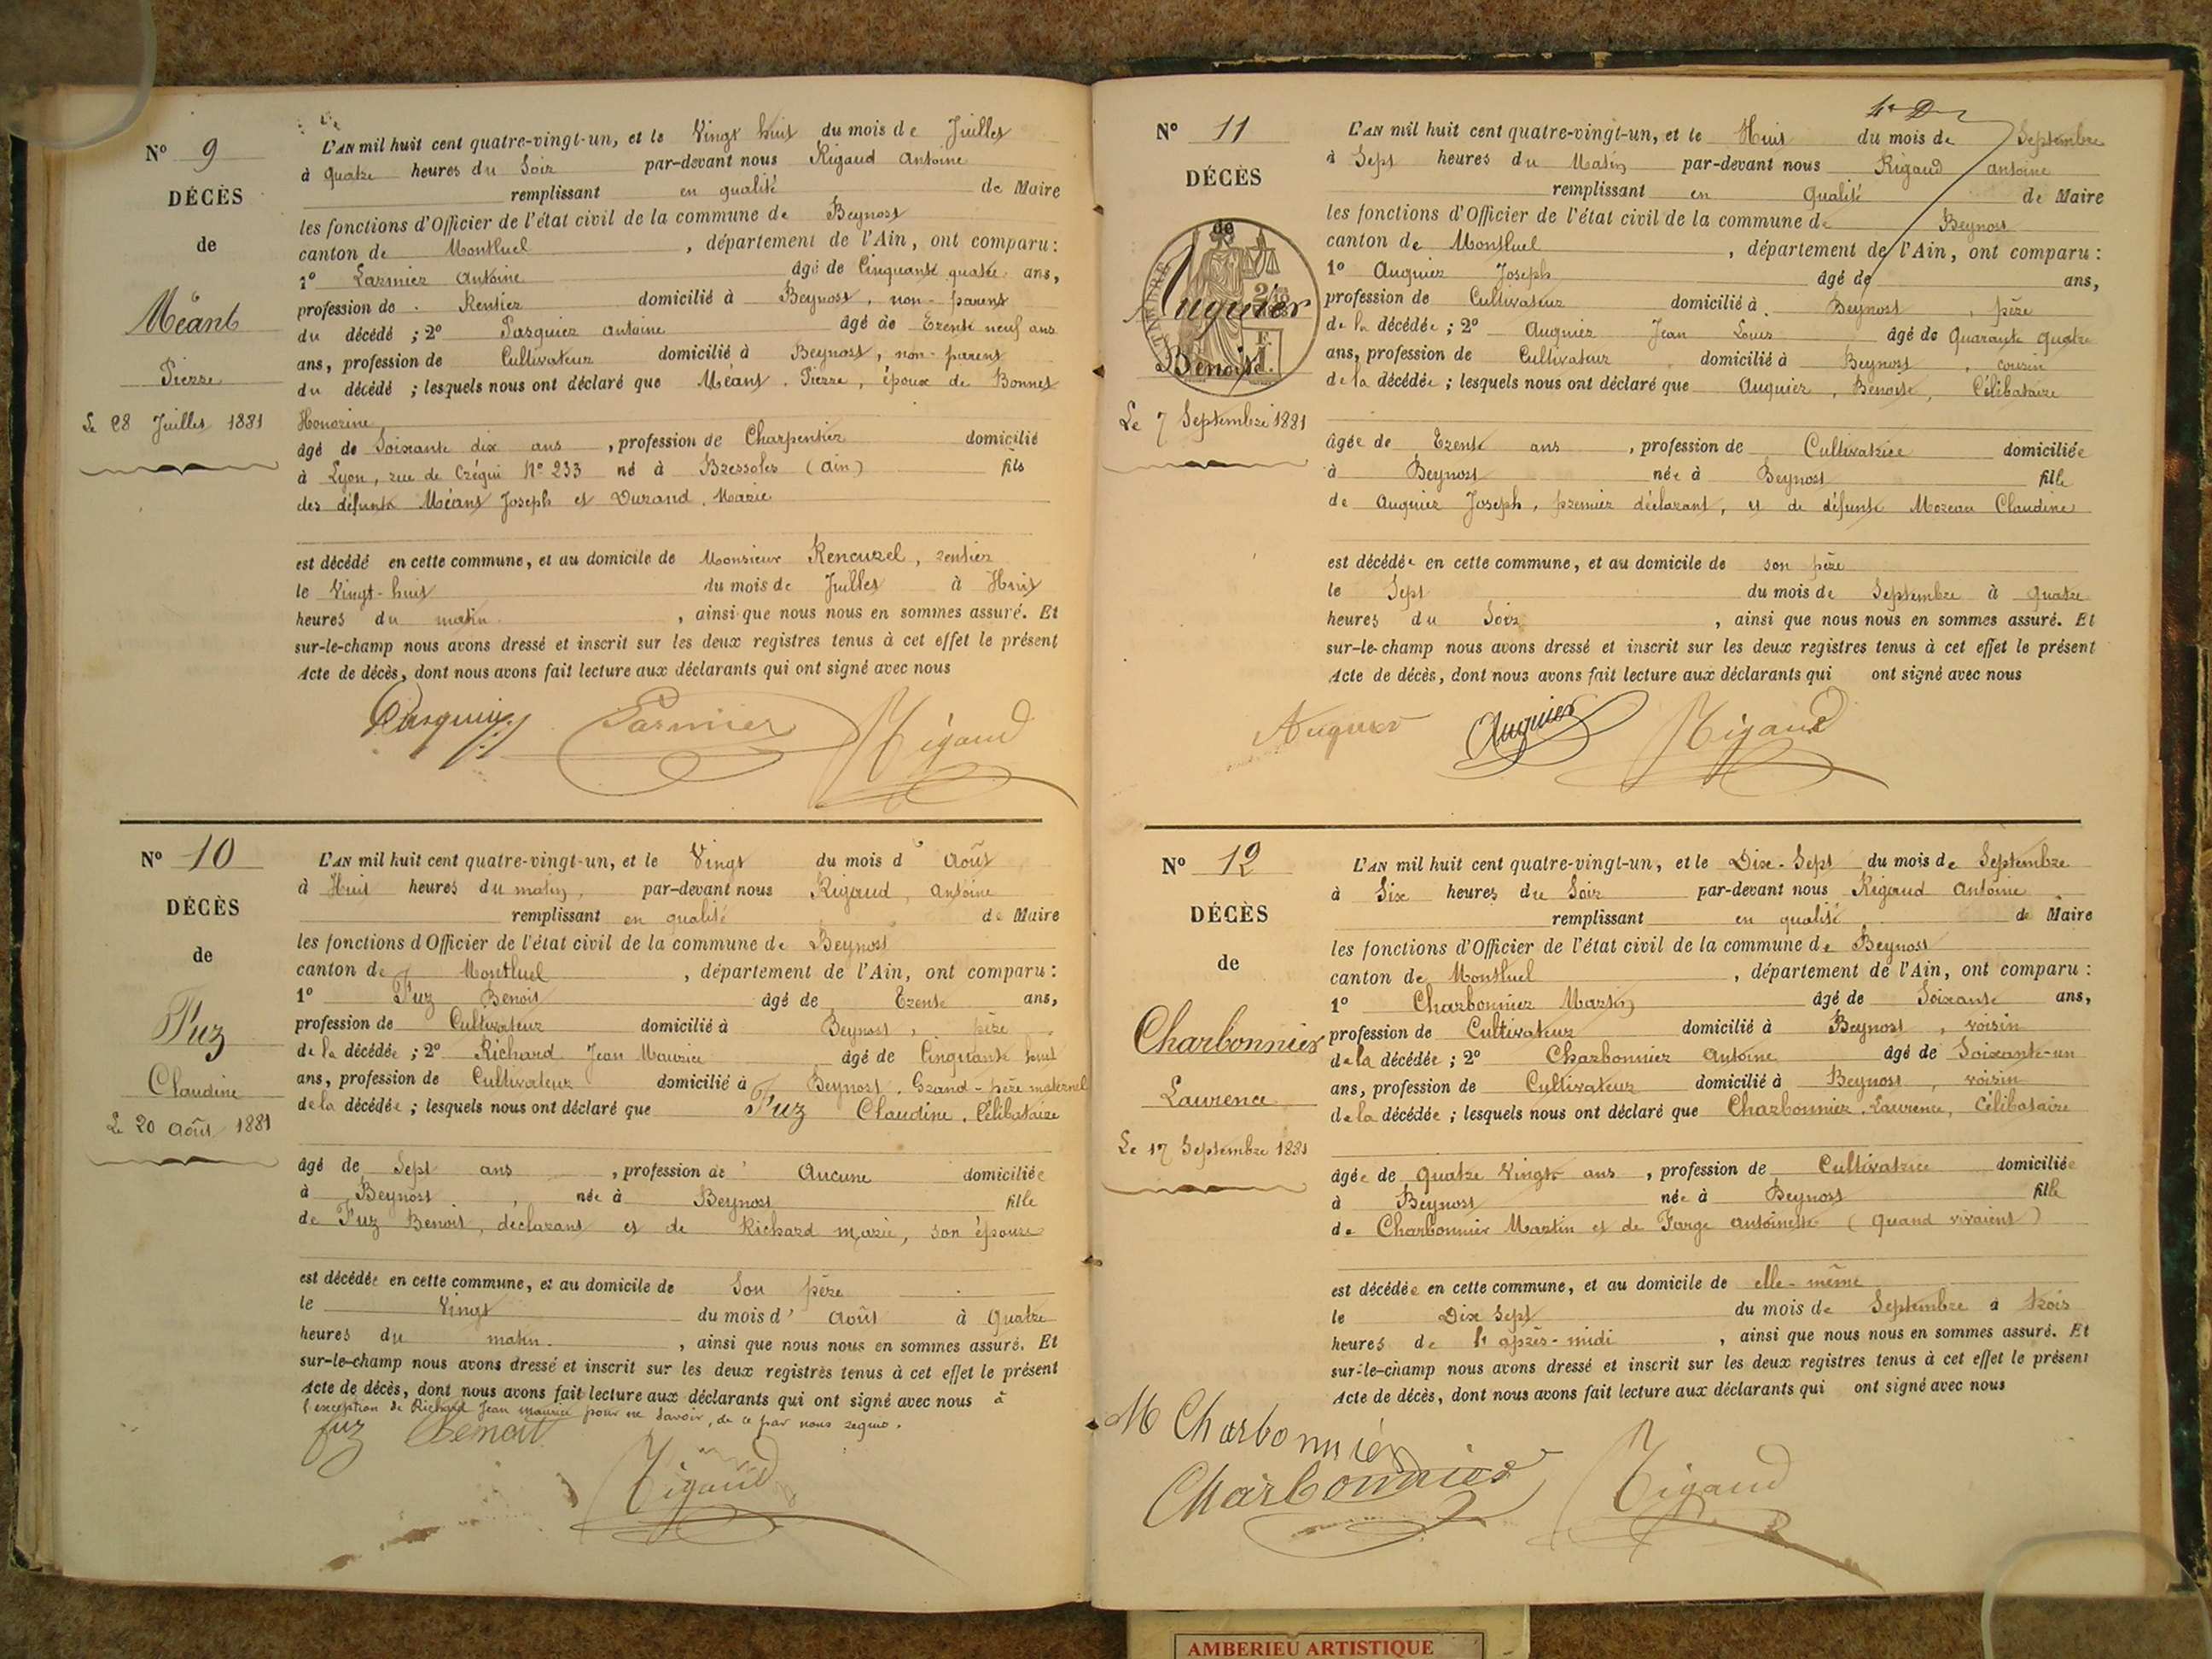 N° 9
DÉCÈS
de
Méant
Pierre
Le 28 Juillet 1881
L'AN mil huit cent quatre-vingt-un, et le Vingt huit du mois de Juillet
à quatre heures du Soir par-devant nous Rigaud Antoine
remplissant en qualité de Maire
les fonctions d'Officier de l'état civil de la commune de Beynost
canton de Montluel, département de l'Ain, ont comparu :
1° Larmier Antoine âgé de Cinquante quatre ans,
profession de Rentier domicilié à Beynost, non-parent
du décédé ; 2° Pasquier Antoine âgé de Trente neuf ans
ans, profession de Cultivateur domicilié à Beynost, non-parent
du décédé ; lesquels nous ont déclaré que Méant, Pierre, époux de Bonnet
Honorine
âgé de Soixante dix ans, profession de Charpentier domicilié
à Lyon, rue de Créqui N° 233 né à Bressoles (Ain) fils
des défunts Méant Joseph et Durand Marie
est décédé en cette commune, et au domicile de Monsieur Rencurel, rentier
le Vingt-huit du mois de Juillet à Huit
heures du matin, ainsi que nous nous en sommes assuré. Et
sur-le-champ nous avons dressé et inscrit sur les deux registres tenus à cet effet le présent
Acte de décès, dont nous avons fait lecture aux déclarants qui ont signé avec nous
Pasquier Larmier Rigaud
N° 10
DÉCÈS
de
Fuz
Claudine
Le 20 Août 1881
L'AN mil huit cent quatre-vingt-un, et le Vingt du mois d'Août
à Huit heures du matin, par-devant nous Rigaud, Antoine
remplissant en qualité de Maire
les fonctions d'Officier de l'état civil de la commune de Beynost
canton de Montluel, département de l'Ain, ont comparu :
1° Fuz Benoit âgé de Trente ans,
profession de Cultivateur domicilié à Beynost, père
de la décédée ; 2° Richard Jean Maurice âgé de Cinquante huit
ans, profession de Cultivateur domicilié à Beynost, Grand-père maternel
de la décédée ; lesquels nous ont déclaré que Fuz Claudine, Célibataire
âgé de Sept ans, profession de Aucune domiciliée
à Beynost, née à Beynost fille
de Fuz Benoit, déclarant et de Richard Marie, son épouse
est décédée en cette commune, et au domicile de Son père
le Vingt du mois d'Août à Quatre
heures du matin, ainsi que nous nous en sommes assuré. Et
sur-le-champ nous avons dressé et inscrit sur les deux registres tenus à cet effet le présent
Acte de décès, dont nous avons fait lecture aux déclarants qui ont signé avec nous à
l'exception de Richard Jean Maurice pour ne savoir, de ce par nous requis.
fuz Benoit
Rigaud
N° 11
DÉCÈS
de
Auguier
Benoite
Le 7 Septembre 1881
L'AN mil huit cent quatre-vingt-un, et le Huit du mois de Septembre
à Sept heures du Matin par-devant nous Rigaud antoine
remplissant en Qualité de Maire
les fonctions d'Officier de l'état civil de la commune de Beynost
canton de Montluel, département de l'Ain, ont comparu :
1° Auguier Joseph âgé de ans,
profession de Cultivateur domicilié à Beynost, père
de la décédée ; 2° Auguier Jean Louis âgé de Quarante quatre
ans, profession de Cultivateur domicilié à Beynost, cousin
de la décédée ; lesquels nous ont déclaré que Auguier, Benoite, Célibataire
âgée de Trente ans, profession de Cultivatrice domiciliée
à Beynost née à Beynost fille
de Auguier Joseph, premier déclarant, et de défunte Moreau Claudine
est décédée en cette commune, et au domicile de son père
le Sept du mois de Septembre à quatre
heures du Soir, ainsi que nous nous en sommes assuré. Et
sur-le-champ nous avons dressé et inscrit sur les deux registres tenus à cet effet le présent
Acte de décès, dont nous avons fait lecture aux déclarants qui ont signé avec nous
Auguier Auguier Rigaud
N° 12
DÉCÈS
de
Charbonnier
Laurence
Le 17 Septembre 1881
L'AN mil huit cent quatre-vingt-un, et le Dix-Sept du mois de Septembre
à Six heures du Soir par-devant nous Rigaud Antoine
remplissant en qualité de Maire
les fonctions d'Officier de l'état civil de la commune de Beynost
canton de Montluel, département de l'Ain, ont comparu :
1° Charbonnier Martin âgé de Soixante ans,
profession de Cultivateur domicilié à Beynost, voisin
de la décédée ; 2° Charbonnier Antoine âgé de Soixante-un
ans, profession de Cultivateur domicilié à Beynost, voisin
de la décédée ; lesquels nous ont déclaré que Charbonnier, Laurence, Célibataire
âgée de Quatre Vingts ans, profession de Cultivatrice domiciliée
à Beynost née à Beynost fille
de Charbonnier Martin et de Farge antoinette (Quand vivaient)
est décédée en cette commune, et au domicile de elle-même
le Dix Sept du mois de Septembre à trois
heures de l'après-midi, ainsi que nous nous en sommes assuré. Et
sur-le-champ nous avons dressé et inscrit sur les deux registres tenus à cet effet le présent
Acte de décès, dont nous avons fait lecture aux déclarants qui ont signé avec nous
M Charbonnier
Charbonnier Rigaud
AMBERIEU ARTISTIQUE